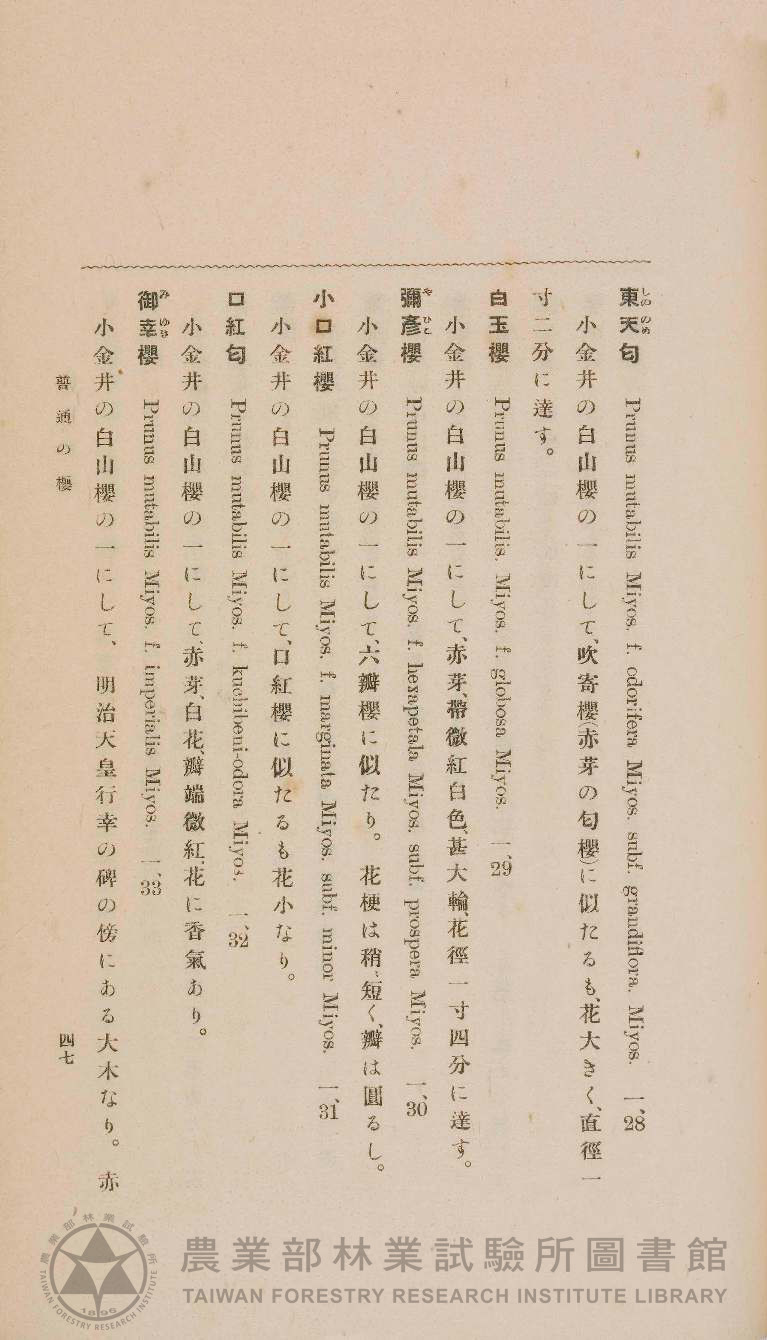 東天匂 Prunus mutabilis Miyos. f. odorifera Miyos. subf. grandiflora. Miyos. 一、28
しののめ
小金井の白山櫻の一にして、吹寄櫻(赤芽の匂櫻)に似たるも、花大きく、直徑一
寸二分に達す。
白玉櫻 Prunus mutabilis. Miyos. f. globosa Miyos. 一、29
小金井の白山櫻の一にして、赤芽、帶微紅白色、甚大輪、花徑一寸四分に達す。
彌彥櫻 Prunus mutabilis Miyos. f. hexapetala Miyos. subf. prospera Miyos. 一、30
やひこ
小金井の白山櫻の一にして、六瓣櫻に似たり。花梗は稍〻短く、瓣は圓るし。
小口紅櫻 Prunus mutabilis Miyos. f. marginata Miyos. subf. minor Miyos. 一、31
小金井の白山櫻の一にして、口紅櫻に似たるも花小なり。
口紅匂 Prunus mutabilis Miyos. f. kuchibeni-odora Miyos. 一、32
小金井の白山櫻の一にして、赤芽、白花、瓣端微紅、花に香氣あり。
御幸櫻 Prunus mutabilis Miyos. f. imperialis Miyos. 一、33
みゆき
小金井の白山櫻の一にして、明治天皇行幸の碑の傍にある大木なり。赤
普通の櫻
四七
農業部林業試驗所圖書館
TAIWAN FORESTRY RESEARCH INSTITUTE LIBRARY
農業部林業試驗所
TAIWAN FORESTRY RESEARCH INSTITUTE
1896